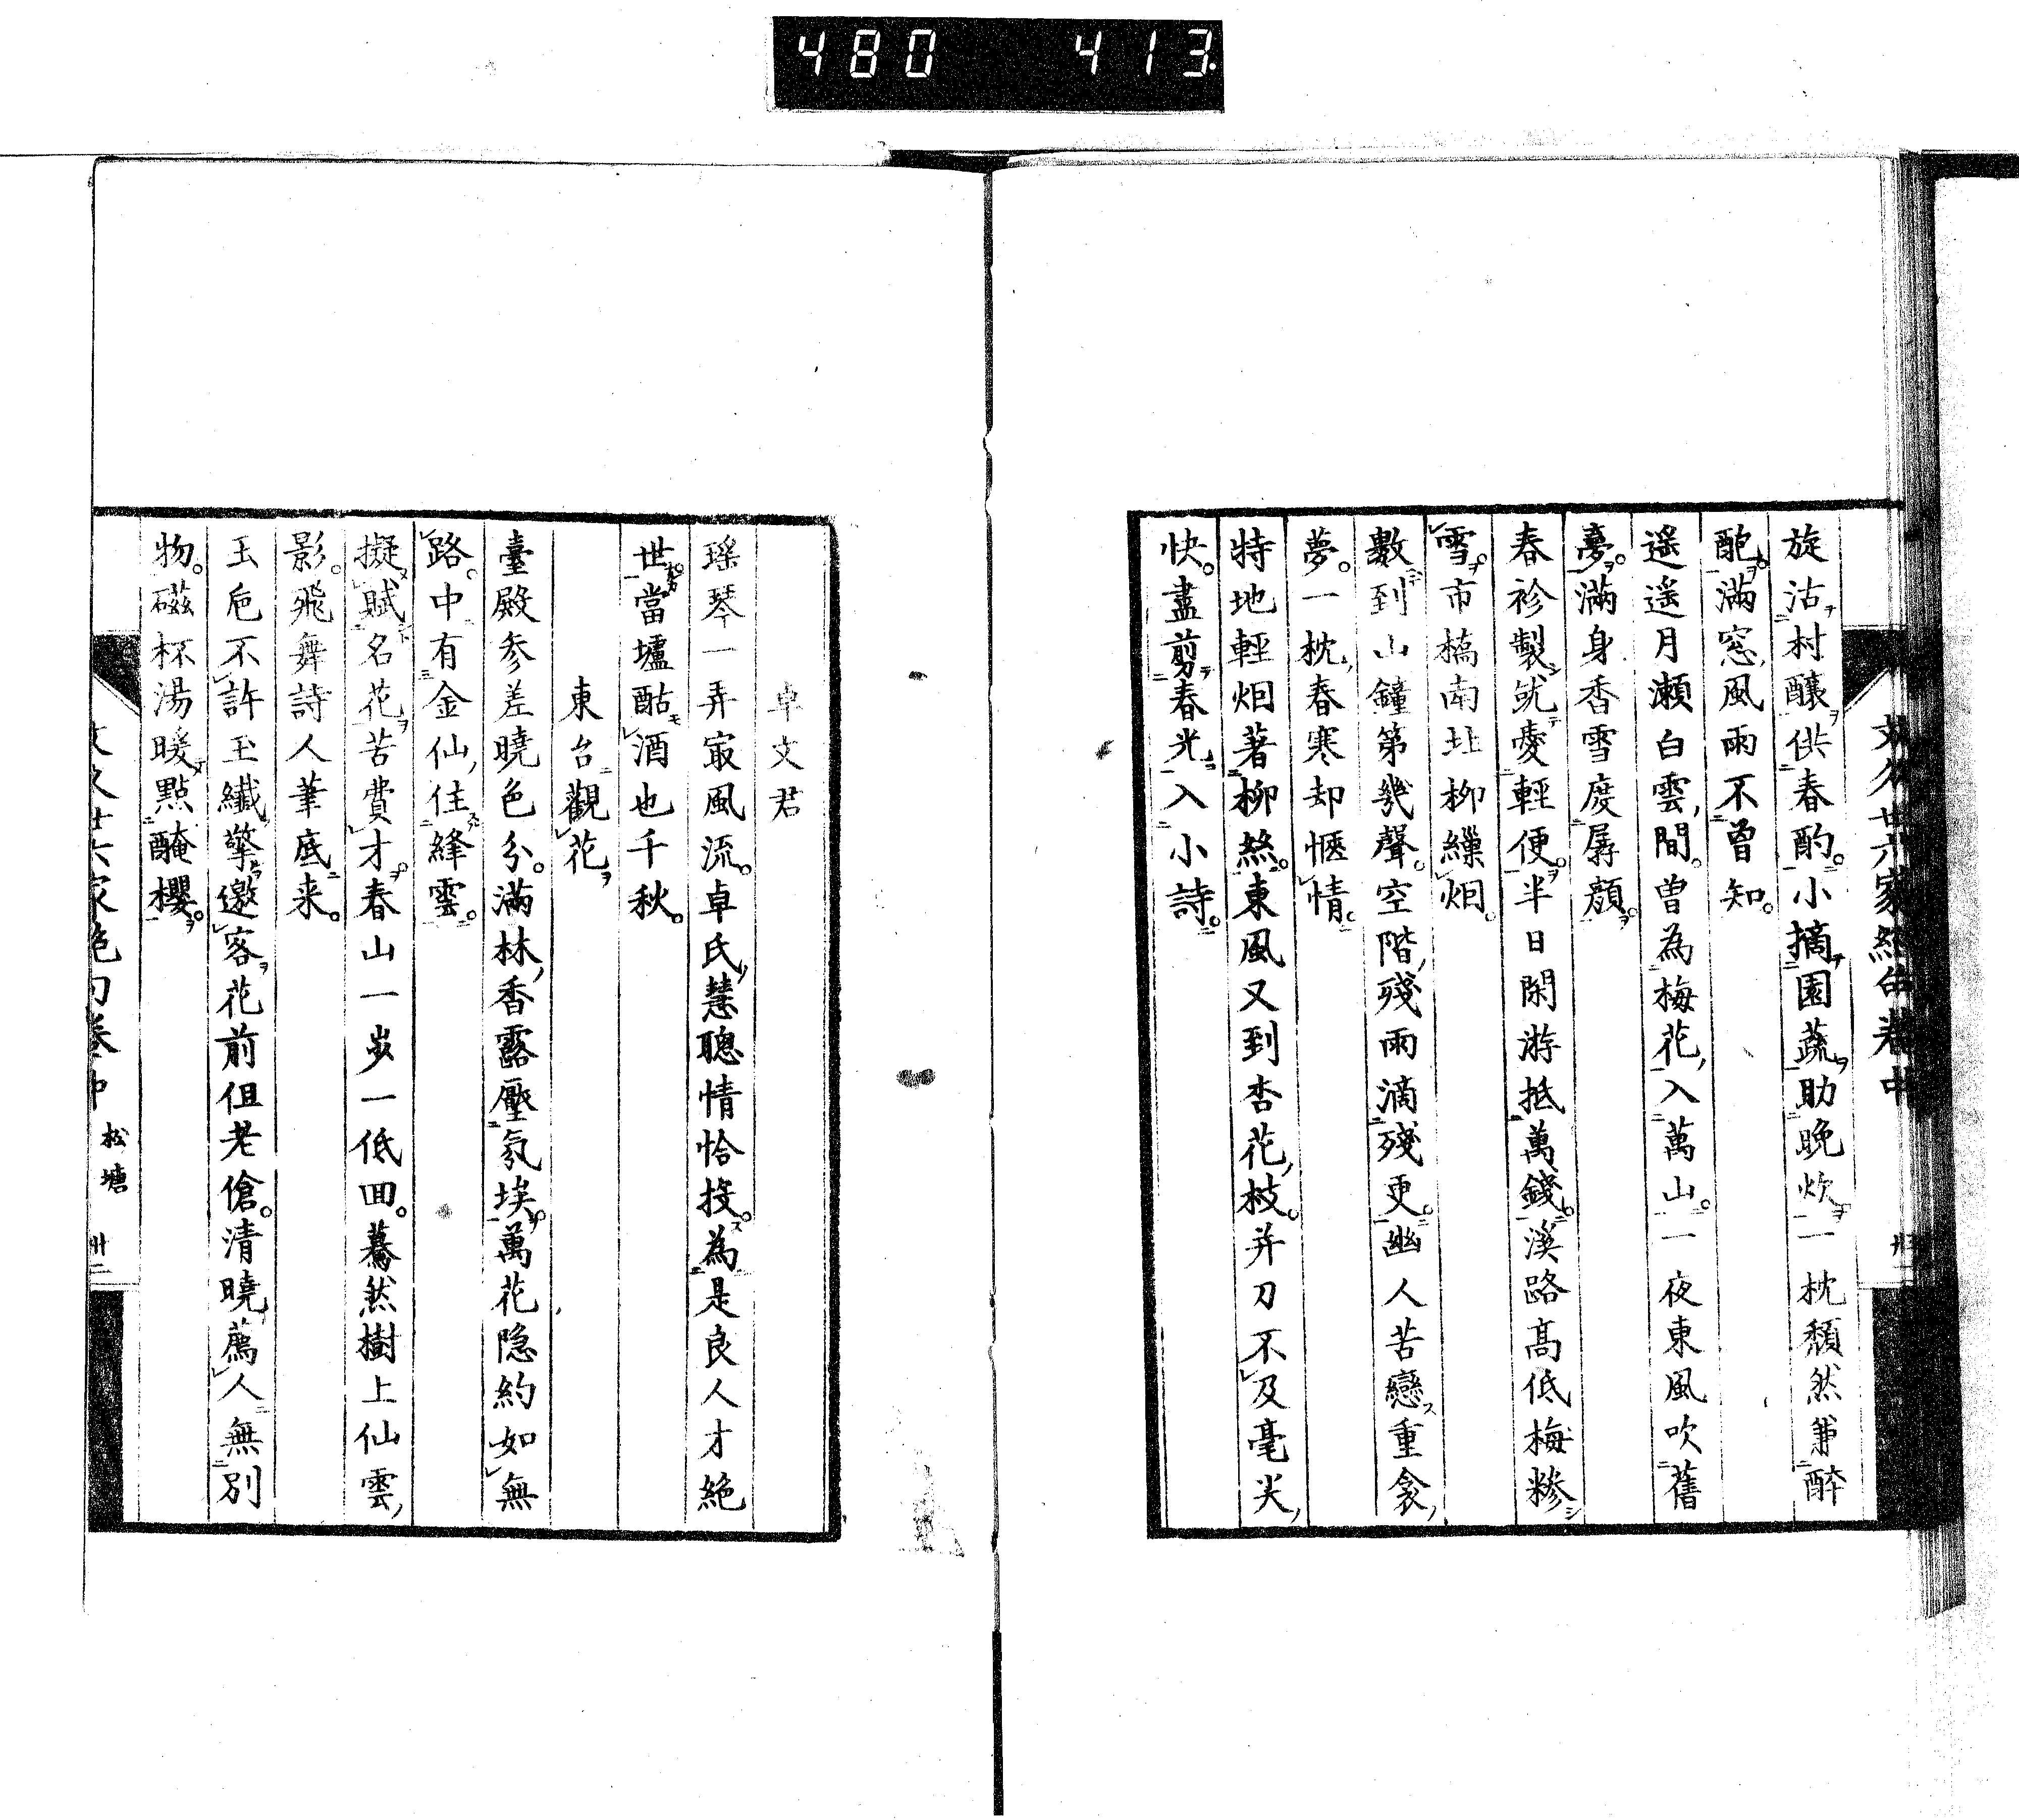 480 413
文久廿六家絶句卷中
旋沽村醸供春酌小摘園蔬助晩炊一枕頽然兼醉
酡滿窓風雨不曾知
遥遥月瀬白雲間曾為梅花入萬山一夜東風吹舊
夢滿身香雪度孱顏
春袗製就憂輕便半日閑游抵萬錢溪路高低梅糝
雪市橋南北柳繰烟
數到山鐘第幾聲空階殘雨滴殘更幽人苦戀重衾
夢一枕春寒却愜情
特地輕烟著柳絲東風又到杏花枝并刀不及毫尖
快盡剪春光入小詩
卓文君
瑶琴一弄冣風流卓氏慧聰情恰投為是良人才絶
世當壚酤酒也千秋
東台觀花
臺殿参差曉色分滿林香露壓氛埃萬花隠約如無
路中有金仙住絳雲
擬賦名花苦費才春山一歩一低回驀然樹上仙雲
影飛舞詩人筆底来
玉巵不許玉纖擎邀客花前但老傖清曉薦人無別
物磁杯湯暖點醃櫻
文久廿六家絶句卷中 松塘 卅二